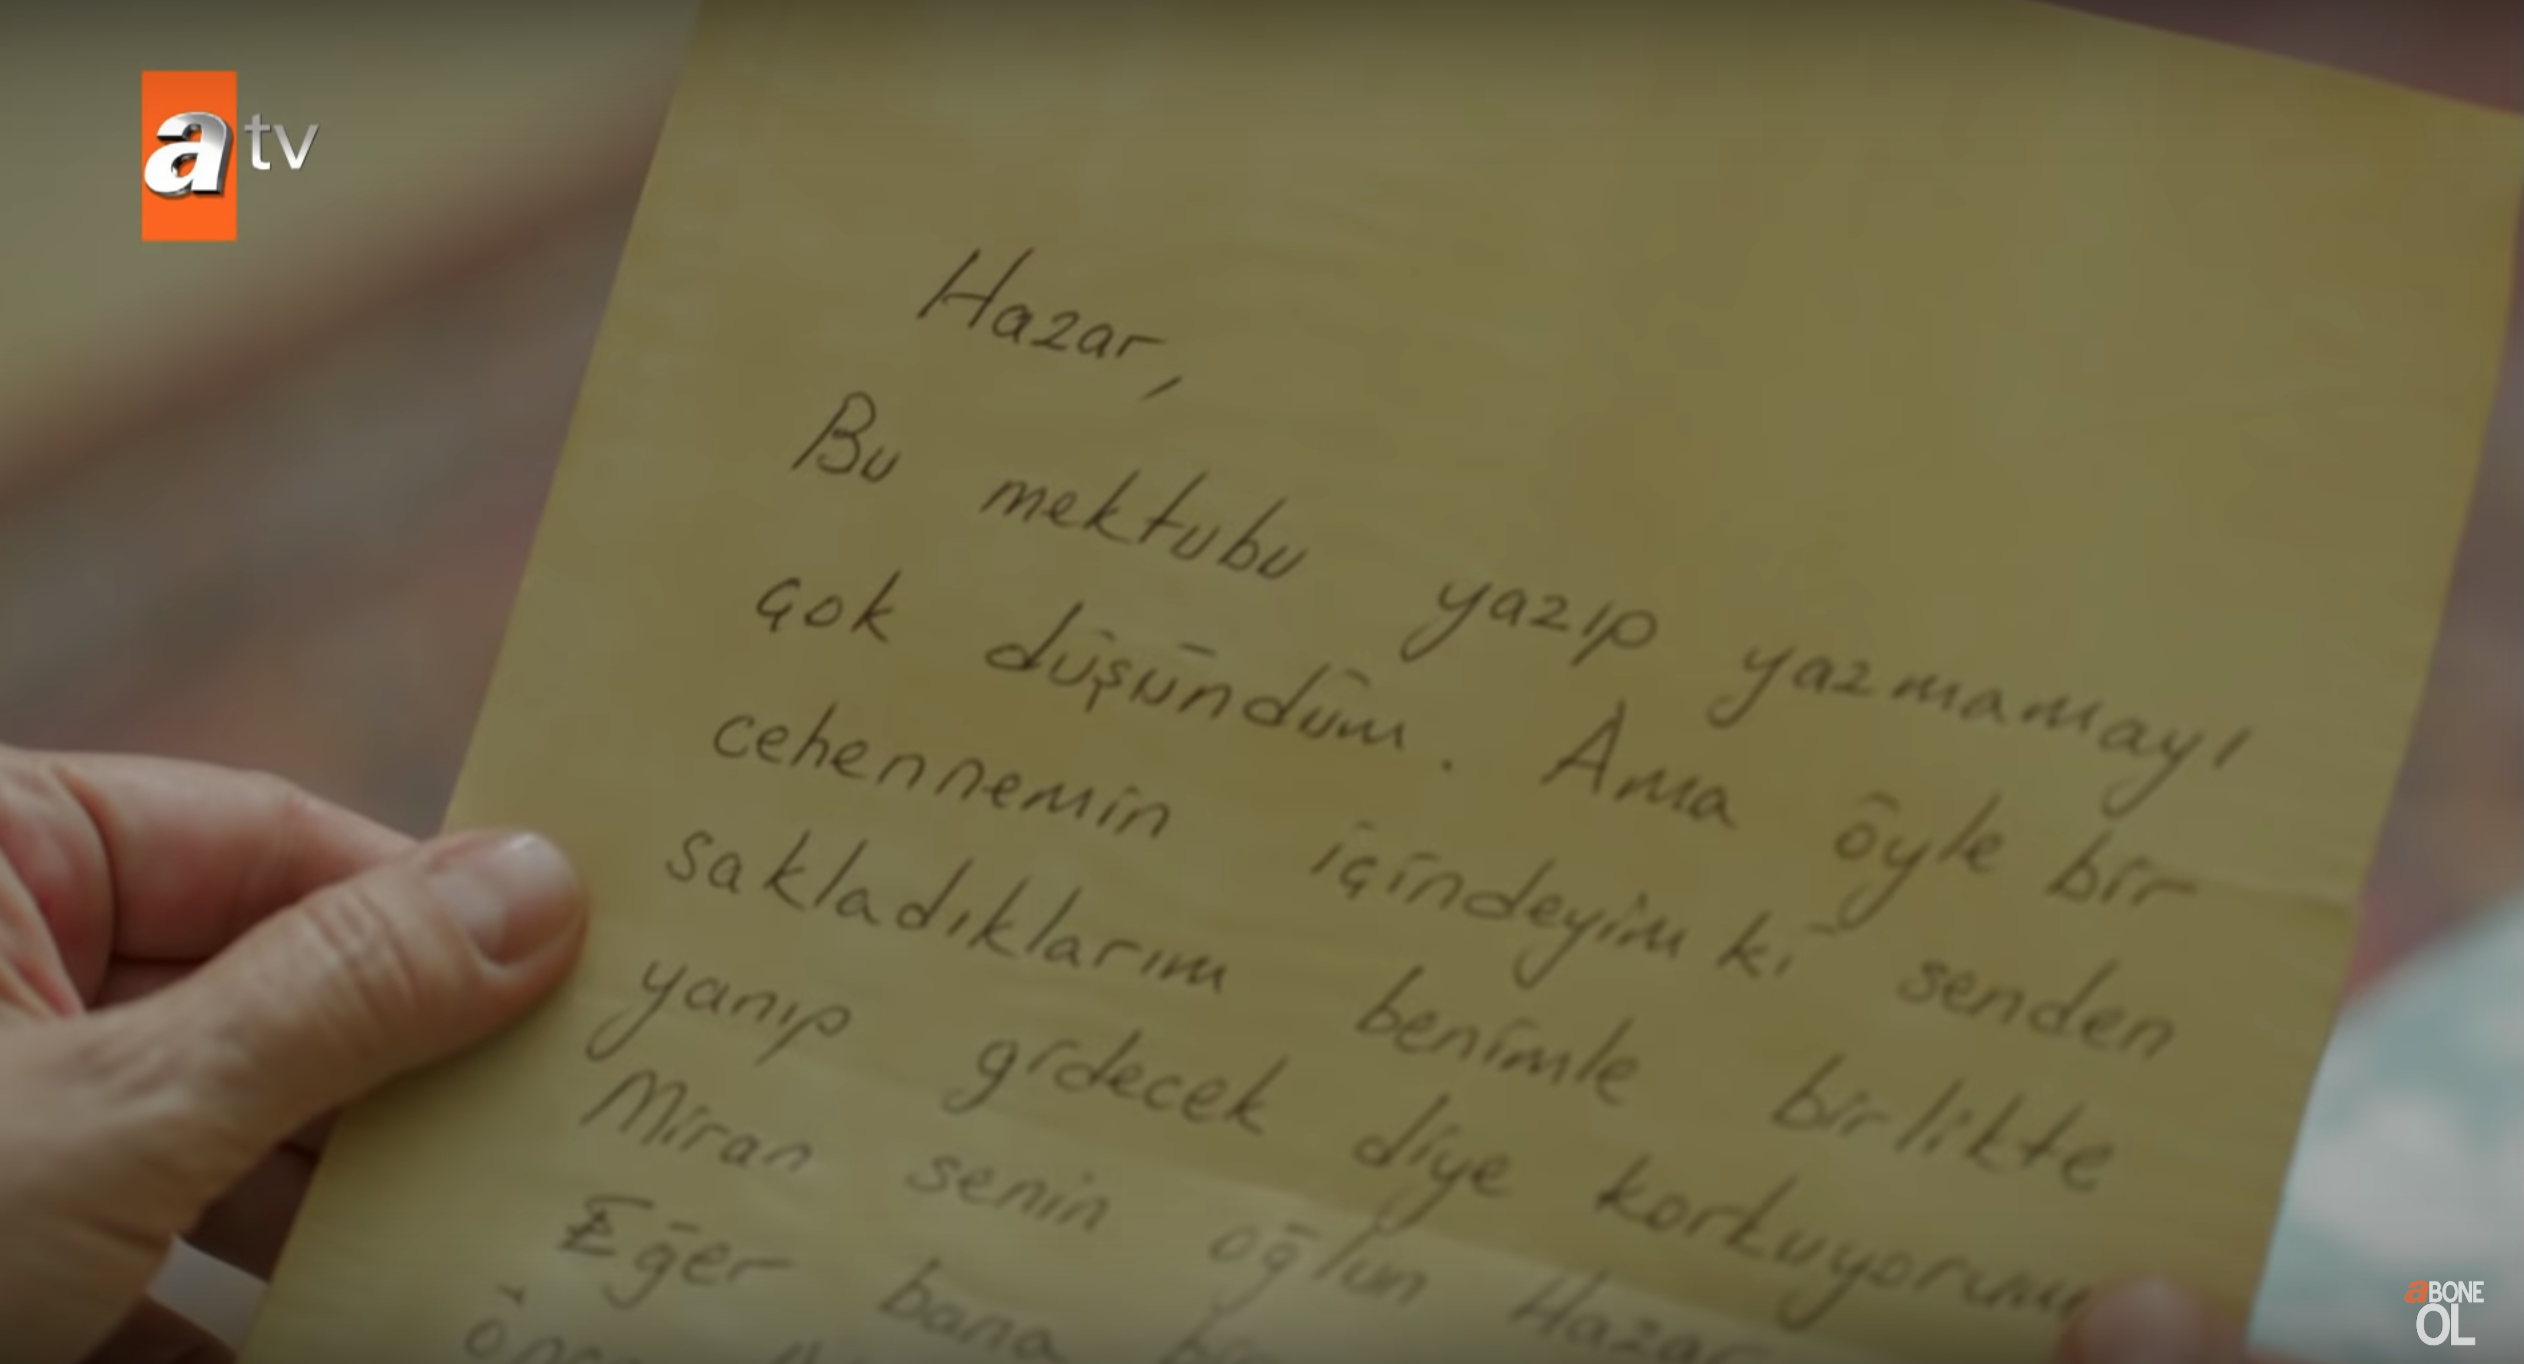 atv
Hazar,
Bu mektubu yazıp yazmamayı
çok düşündüm. Ama öyle bir
cehennemin içindeyim ki senden
sakladıklarım benimle birlikte
yanıp gidecek diye korkuyorum
Miran senin oğlun Hazar
Eğer bana
aBONE
OL